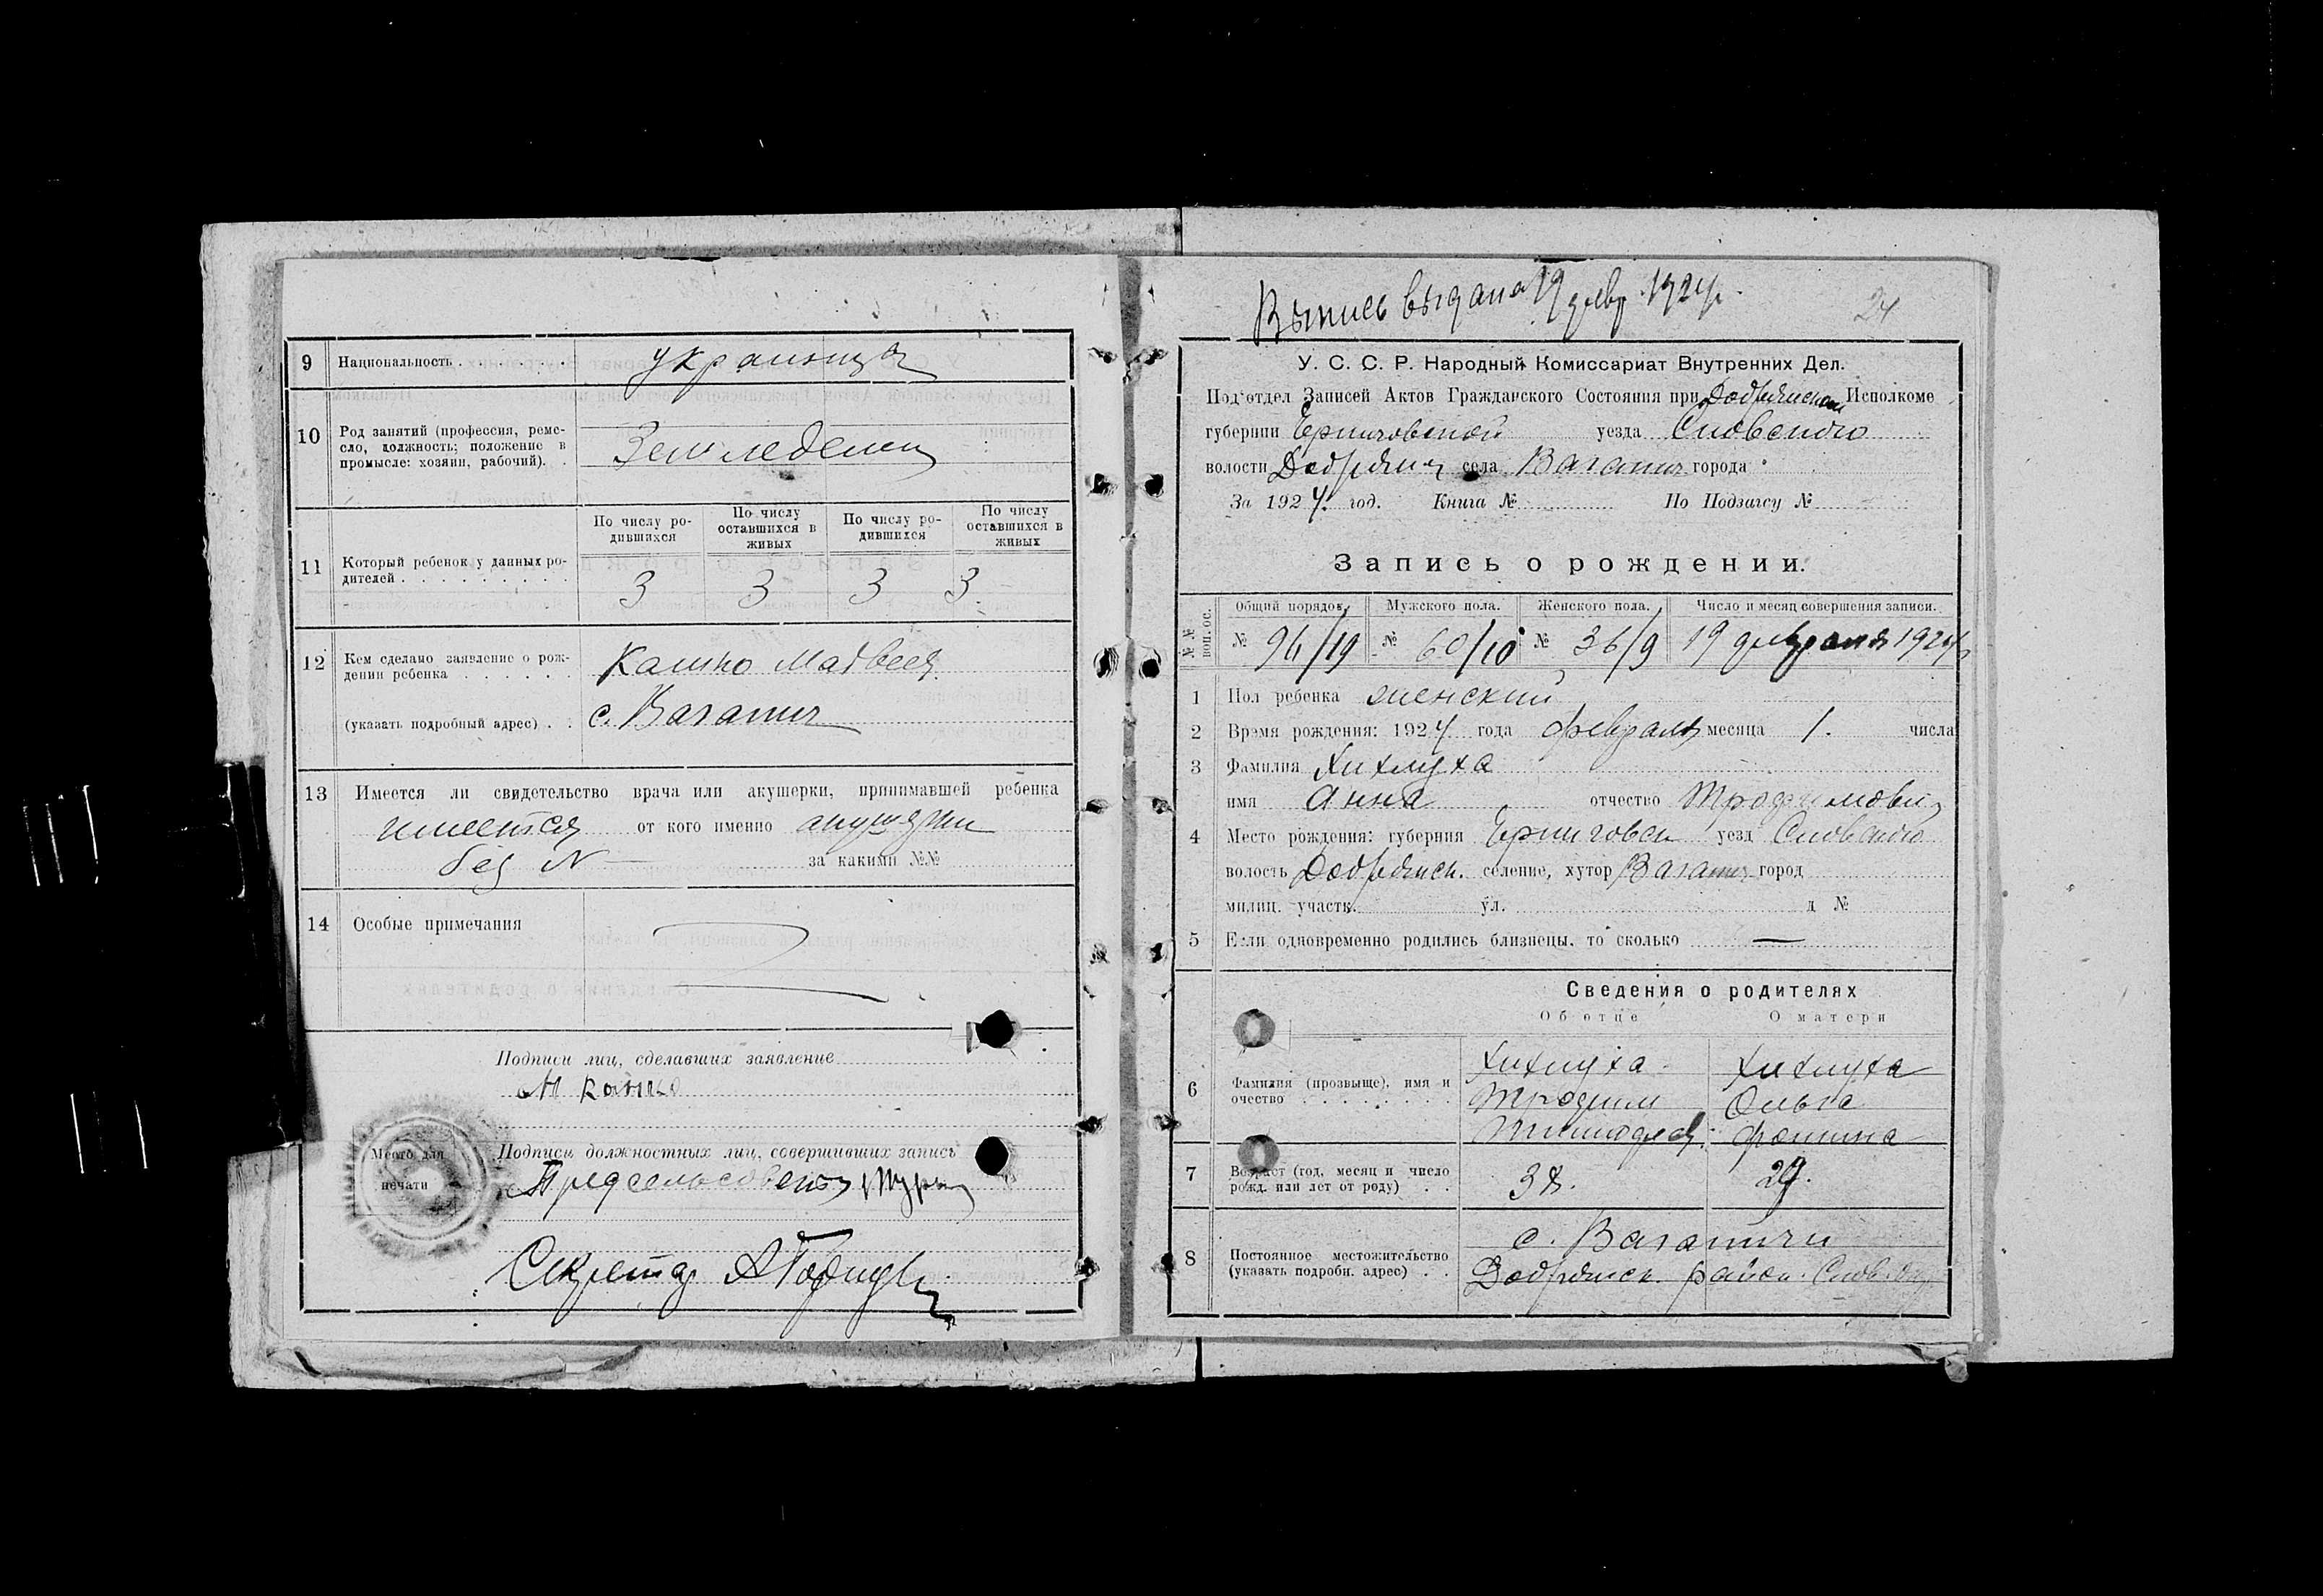 9 Национальность . украинца
10 Род занятий (профессия, реме-
сло, должность; положение в
промысле: хозяин, рабочий). .
Земледелец
По числу ро-
дившихся
По числу
оставшихся в
живых
По числу ро-
дившихся
По числу
оставшихся в
живых
11 Который ребенок у данных ро-
дителей . . . . . . . . . .
3 3 3 3
12 Кем сделано заявление о рож-
дении ребенка . . . . . .
Кашко Матвеем
(указать подробный адрес) . . с. Ваганич
13 Имеется ли свидетельство врача или акушерки, принимавшей ребенка
имеется от кого именно акушерки
без N за какими №№
14 Особые примечания
Подписи лиц, сделавших заявление
М Кашко
Место для
печати
Подписи должностных лиц, совершивших запись
Предсельсовета
Секретар
Выпись выдана 19 февр. 1924 г.
24
У. С. С. Р. Народный Комиссариат Внутренних Дел.
Подотдел Записей Актов Гражданского Состояния при Добрянском Исполкоме
губернии Черниговской уезда Сновского
волости Добрянск села Ваганич города
За 1924 год. Книга № По Подзагсу №
Запись о рождении.
№№ поп. ос.
Общий порядок. Мужского пола. Женского пола. Число и месяц совершения записи.
№ 96/19 № 60/10 № 36/9 19 февраля 1924
1 Пол ребенка женский
2 Время рождения: 1924 года февраля месяца 1. числа
3 Фамилия Хихлуха
имя Анна отчество Трофимовн
4 Место рождения: губерния Черниговск уезд Сновского
волость Добрянск. селение, хутор Ваганич город
милиц. участк. ул. д №
5 Если одновременно родились близнецы, то сколько —
Сведения о родителях
Об отце О матери
6 Фамилия (прозвыще), имя и
очество . . . . . . . .
Хихлуха
Трофим
Хихлуха
Ольга
Фомина
7 Возраст (год, месяц и число
рожд. или лет от роду) . .
38. 29.
8 Постоянное местожительство
(указать подробн. адрес) . .
с. Ваганичи
Добрянск. район. Снов. окр